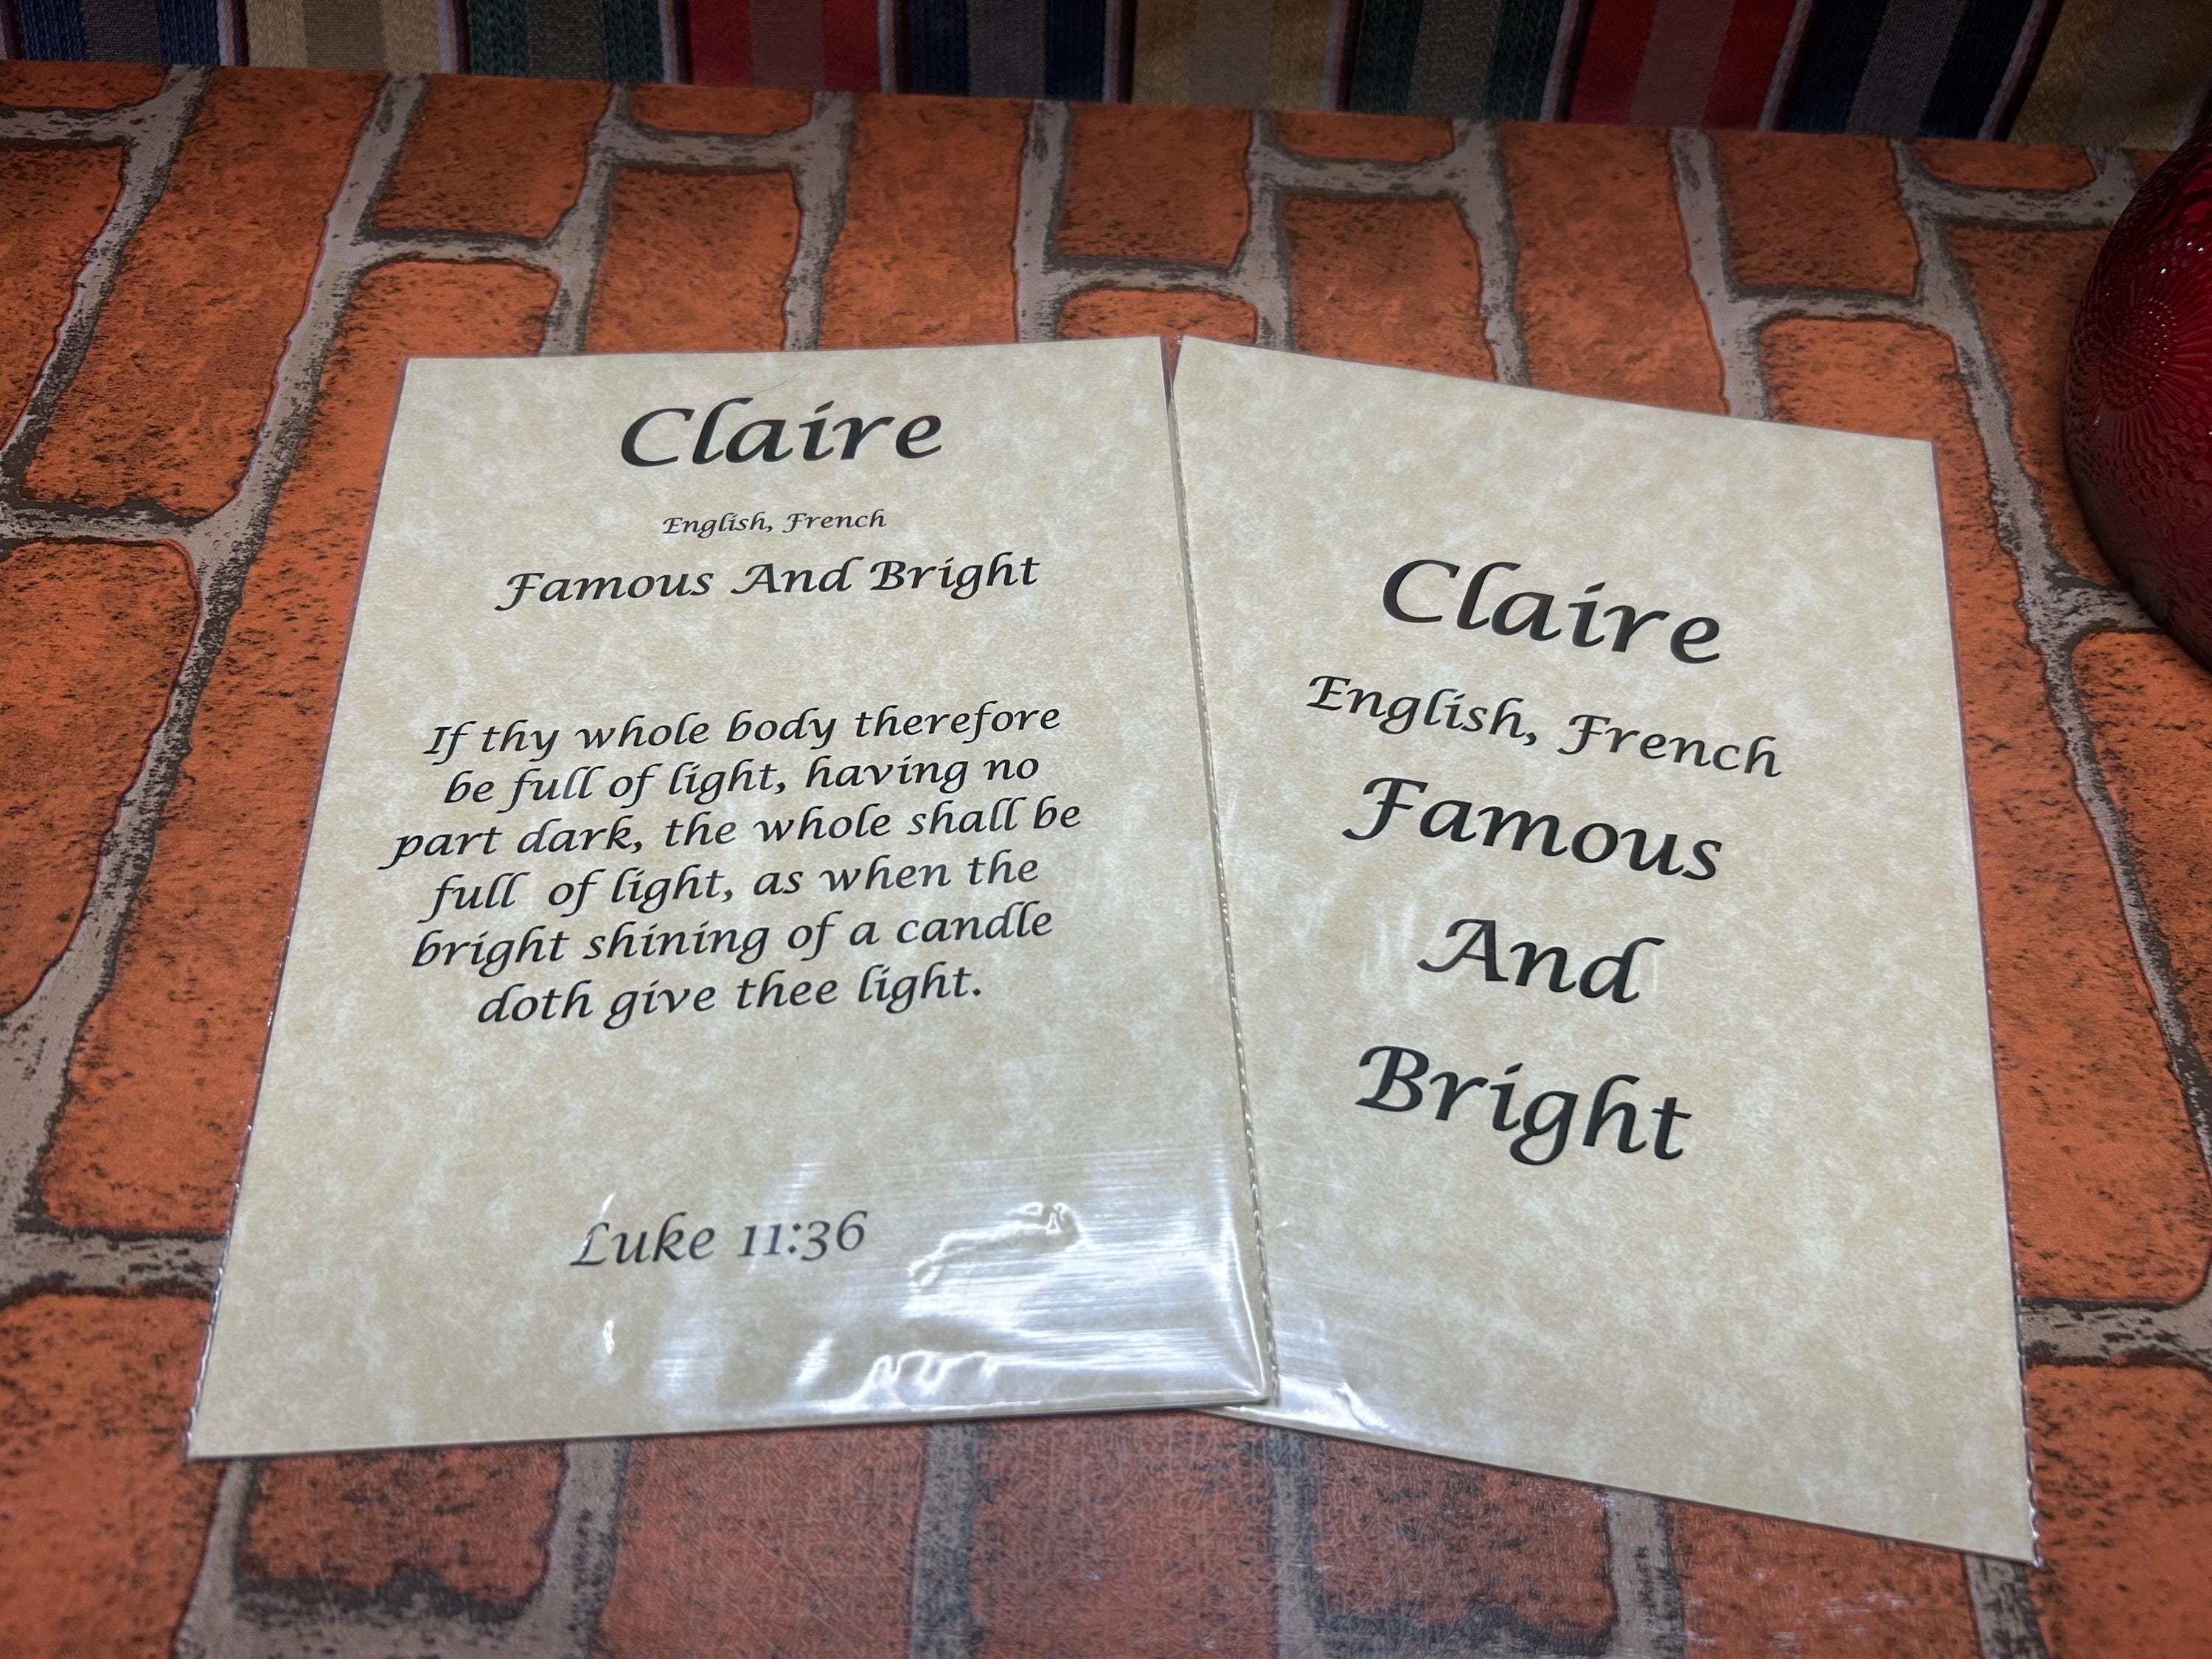 Claire
English, French
Famous And Bright
If thy whole body therefore
be full of light, having no
part dark, the whole shall be
full of light, as when the
bright shining of a candle
doth give thee light.
Luke 11:36
Claire
English, French
Famous
And
Bright